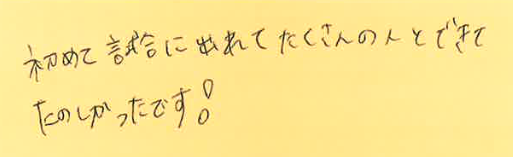 初めて試合に出れてたくさんの人とできて
たのしかったです!